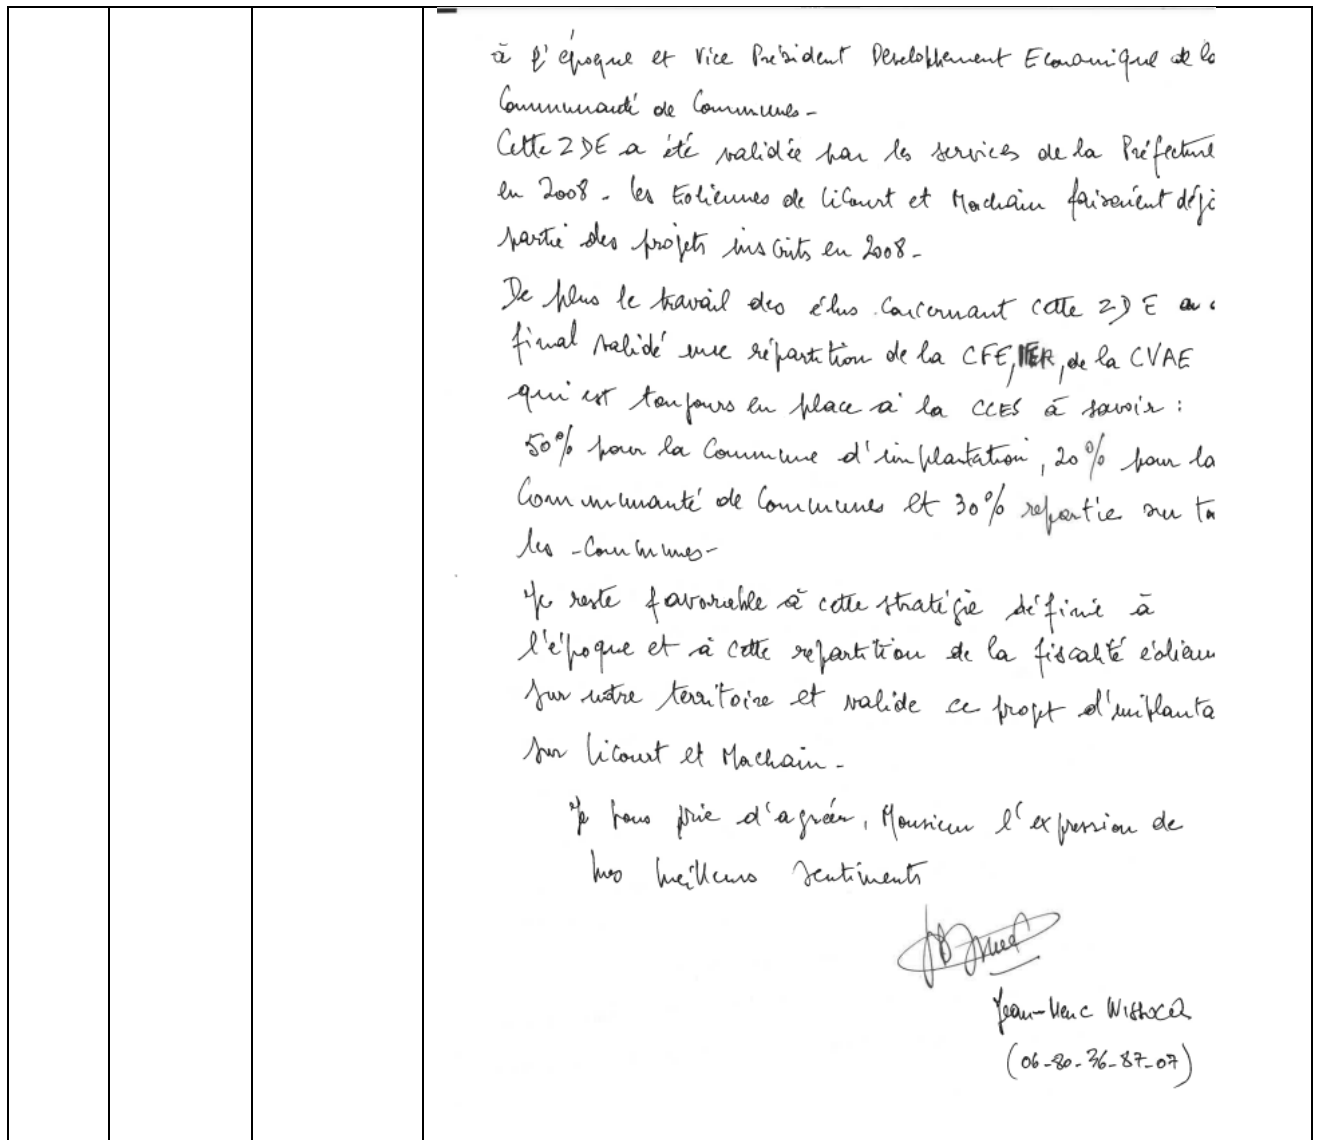 à l'époque et Vice Président Développement Economique de la
Communauté de Communes-
Cette ZDE a été validée par les services de la Préfecture
en 2008 - les Eoliennes de Licourt et Morchain faisaient déjà
partie des projets inscrits en 2008 -
De plus le travail des élus concernant cette ZDE a
final validé une répartition de la CFE, IFER, de la CVAE
qui est toujours en place à la CCES à savoir :
50% pour la Commune d'implantation, 20% pour la
Communauté de Communes et 30% repartie sur
les -Communes-
Je reste favorable à cette stratégie définie à
l'époque et à cette repartition de la fiscalité
sur notre territoire et valide ce projet d'implanta
sur Licourt et Morchain -
Je vous prie d'agréer, Monsieur l'expression de
mes meilleurs sentiments
Jean-Marc
(06-80-36-87-07)